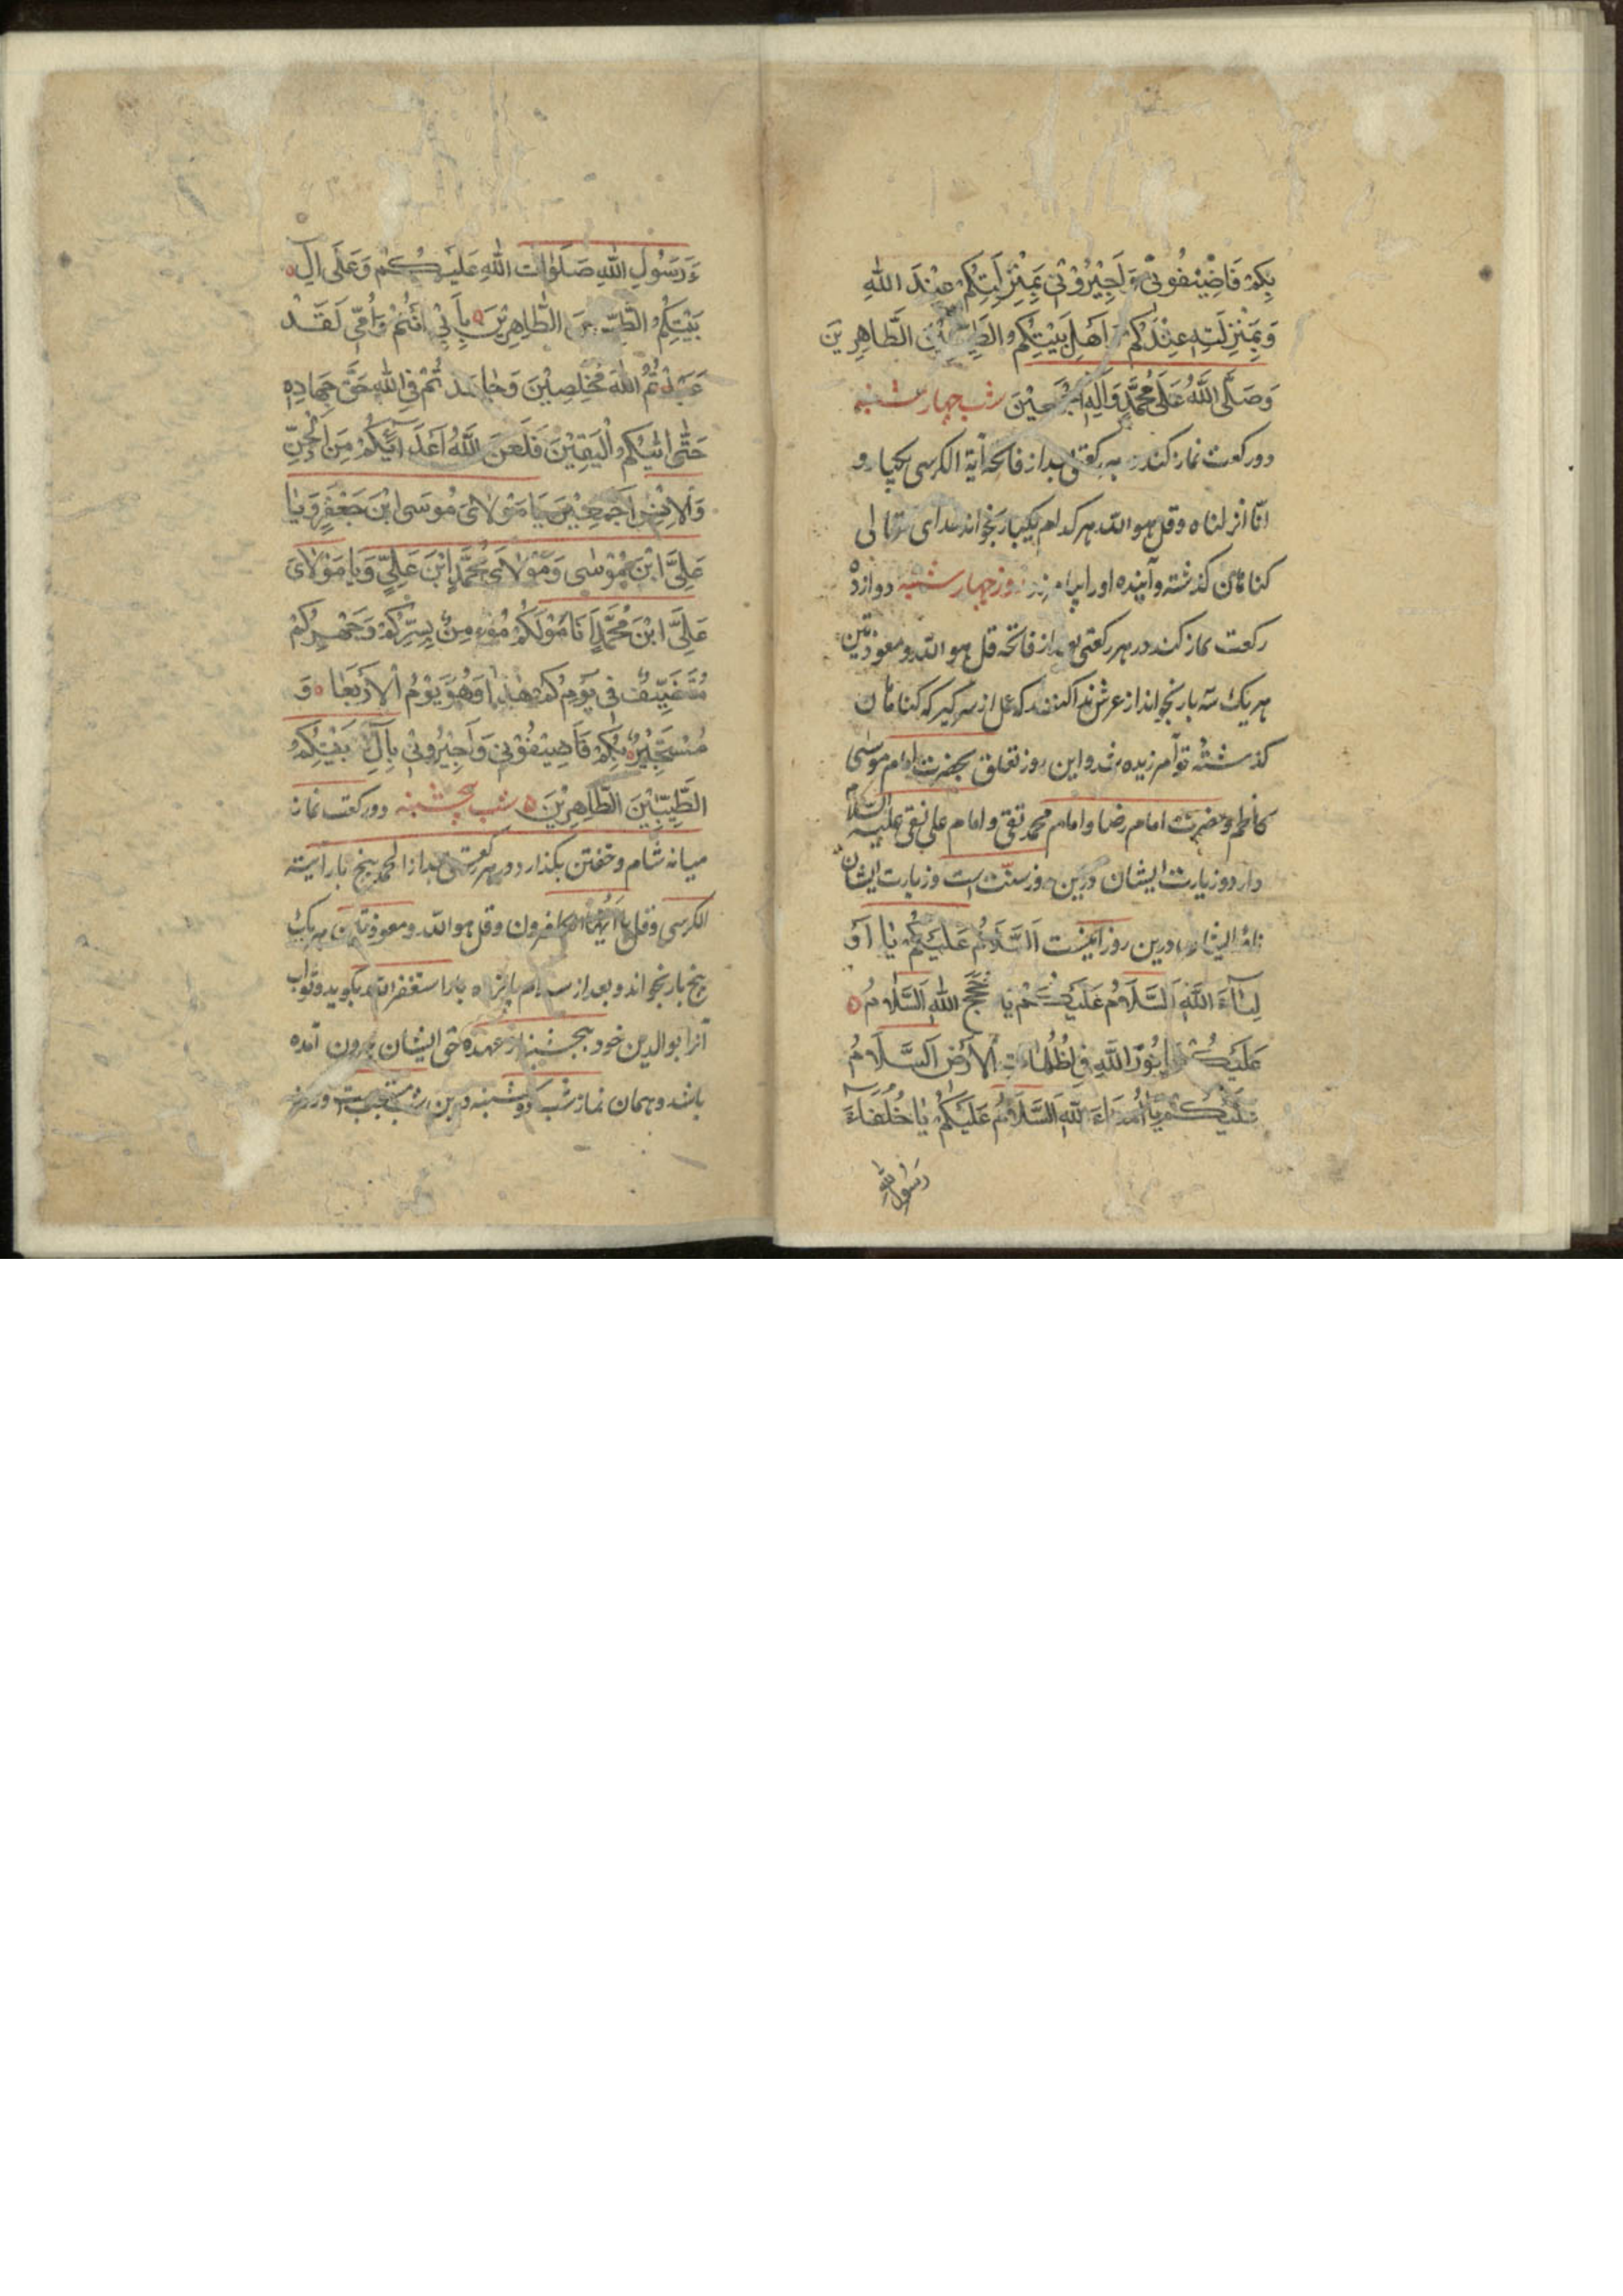 بِكُمْ فَاَضِيْفُونِيْ وَاَجِيْرُوْنِيْ بِمَنْزِلَتِكُمْ عِنْدَ اللهِ
وَبِمَنْزِلَتِهِ عِنْدَكُمْ وَاَهْلِ بَيْتِكُمُ الطَّيِّبِيْنَ الطَّاهِرِيْنَ
وَصَلَّى اللَّهُ عَلٰى مُحَمَّدٍ وَاٰلِهِ اَجْمَعِيْنَ شب چهار شنبه
دو ركعت نماز كند در هر ركعتى بعد از فاتحه آية الكرسى يكبار و
انّا انزلناه و قل هو الله هر كدام يكبار بخواند خداى تعالى
كناهان كذشته و آينده او را بيامرزد روز چهار شنبه دوازده
ركعت نماز كند در هر ركعتى بعد از فاتحه قل هو الله و معوذتين
هر يك سه بار بخواند از عرش ندا كنند كه عمل از سر كير كه كناهان
كذشتهٔ تو آمرزيده شد و اين روز تعلق بحضرت امام موسى
كاظم و حضرت امام رضا و امام محمد تقى و امام على نقى عليه السلام
دارد و زيارت ايشان درين روز سنّت است و زيارت ايشان
درين روز اينست اَلسَّلَامُ عَلَيْكُمْ يَا اَوْ
لِيَآءَ اللَّهِ اَلسَّلَامُ عَلَيْكُمْ يَا حُجَجَ اللهِ اَلسَّلَامُ
عَلَيْكُمْ يَا نُوْرَ اللَّهِ فِي ظُلُمَاتِ الْاَرْضِ اَلسَّلَامُ
عَلَيْكُمْ يَا اُمَنَاءَ اللهِ اَلسَّلَامُ عَلَيْكُمْ يَا خُلَفَآءَ
رَسُولِ اللهِ
ءَ رَسُوْلِ اللهِ صَلَوَاتُ اللهِ عَلَيْكُمْ وَعَلٰى اٰلِ
بَيْتِكُمُ الطَّيِّبِيْنَ الطَّاهِرِيْنَ بِاَبِيْ اَنْتُمْ وَاُمِّي لَقَدْ
عَبَدْتُمُ اللهَ مُخْلِصِيْنَ وَجَاهَدْتُمْ فِي اللهِ حَقَّ جِهَادِهِ
حَتّٰى اَتٰيكُمُ الْيَقِيْنَ فَلَعَنَ اللَّهُ اَعْدَآئَكُمْ مِنَ الْجِنِّ
وَالْاِنْسِ اَجْمَعِيْنَ يَا مَوْلَايَ مُوْسَى ابْنَ جَعْفَرٍ وَيَا
عَلِيَّ ابْنَ مُوْسٰى وَمَوْلَايَ مُحَمَّدَ ابْنَ عَلِيٍّ وَيَا مَوْلَايَ
عَلِيَّ ابْنَ مُحَمَّدٍ اَنَا مَوْلَكُمْ مُؤْمِنٌ بِسِرِّكُمْ وَجَهْرِكُمْ
مُتَضَيِّفٌ فِي يَوْمِكُمْ هٰذَا وَهُوَ يَوْمُ الْاَرْبَعَا وَ
مُسْتَجِيْرٌ بِكُمْ فَاَضِيْفُوْنِي وَاَجِيْرُوْنِيْ بِاٰلِ بَيْتِكُمُ
الطَّيِّبِيْنَ الطَّاهِرِيْنَ شب پنچشنبه دو ركعت نماز
ميانه شام و خفتن بكذارد در هر ركعتى بعد از الحمد پنج بار آية
الكرسى و قل يا ايها الكافرون و قل هو الله و معوذتين هر يك
پنج بار بخواند و بعد از سلام پانزده بار استغفر الله بكويد و ثواب
آنرا بوالدين خود بخشد از عهده حق ايشان بيرون آمده
باشد و همان نماز شب دوشنبه درين شب مستحبست